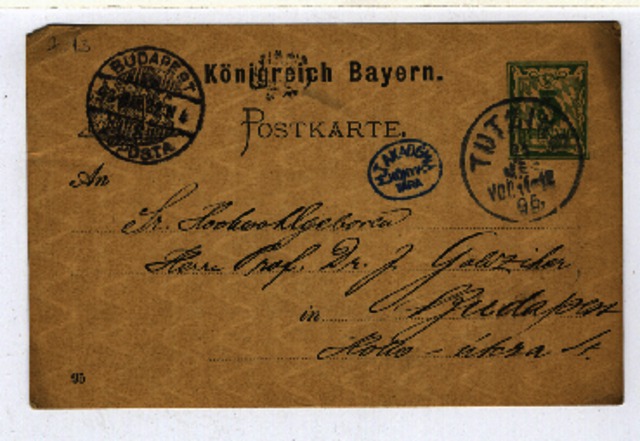 BUDAPEST
POSTA
Königreich Bayern.
POSTKARTE.
M.T. AKADÉMIA
KÖNYV
TÁRA
TUTZING
VOR. 11-12
96.
An
Sr. Hochwohlgeboren
Herrn Prof. Dr. J. Goldziher
in Budapest
Hollo-utcza 4.
95